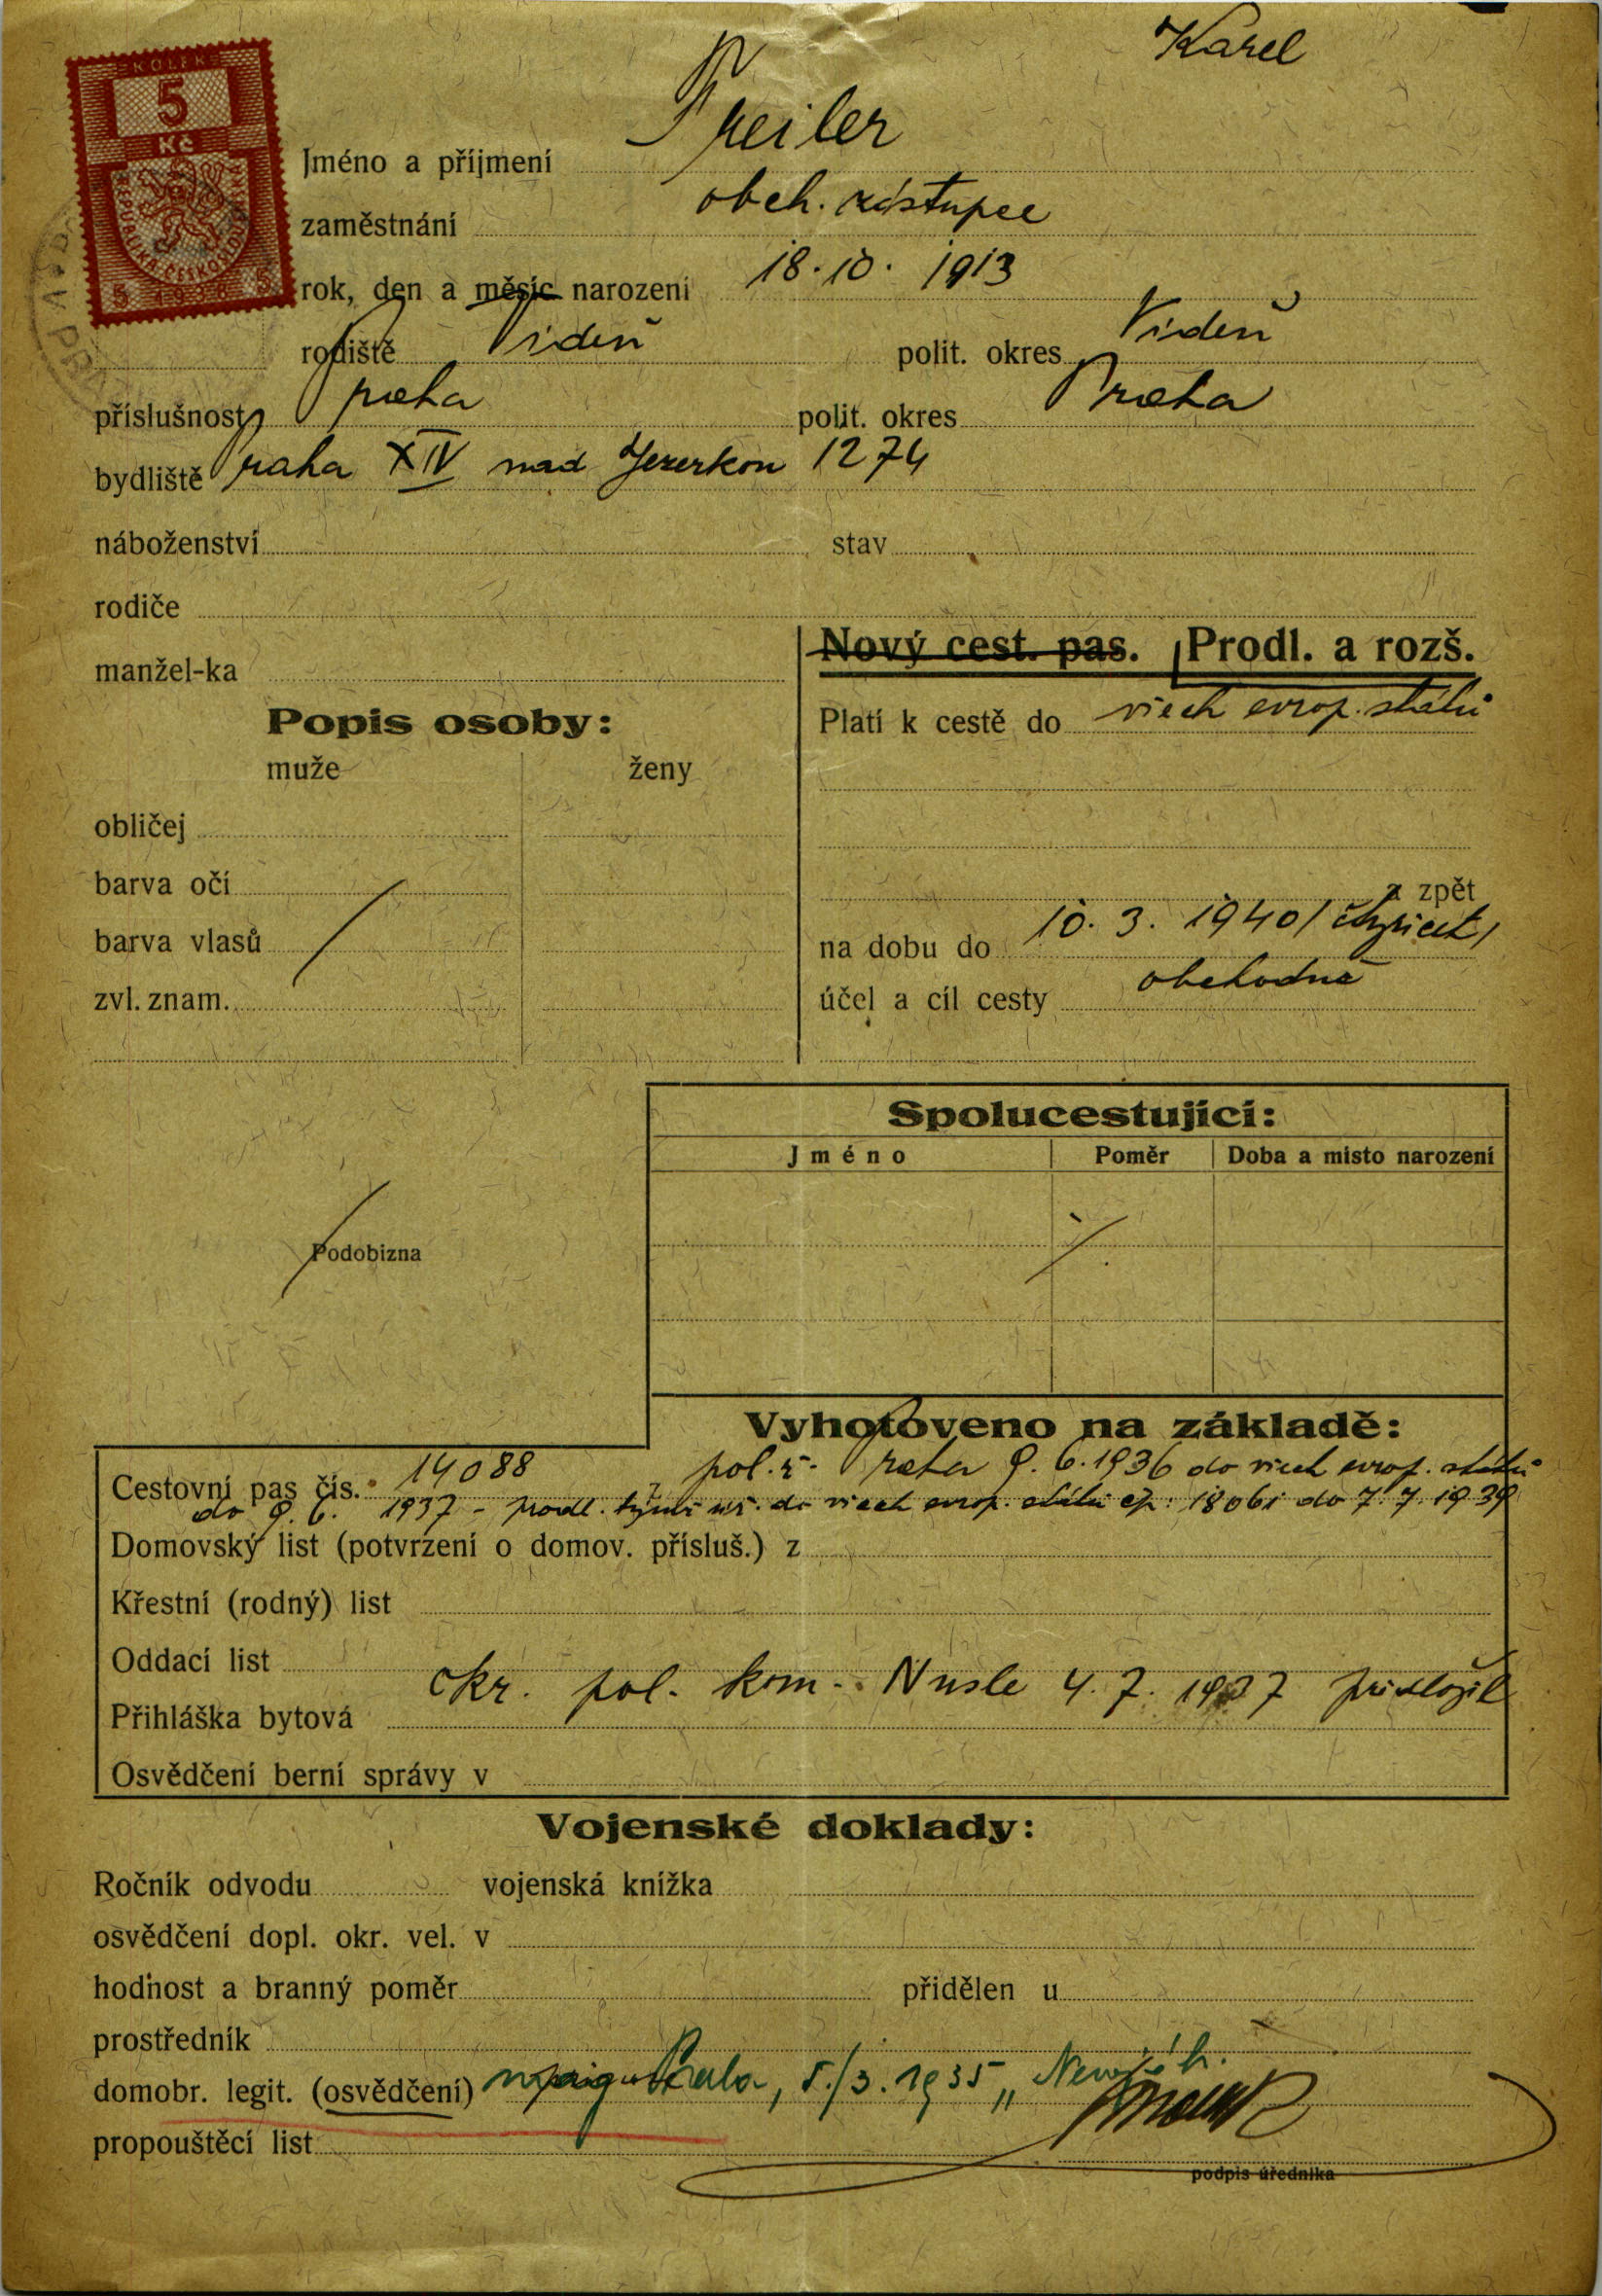 Karel
KOLEK
5
Kč
REPUBLIKA ČESKOSLOVENSKÁ
5 1938 5
Jméno a příjmení Freiler
zaměstnání obch. zástupce
rok, den a měsíc narození 18. 10. 1913
rodiště Vídeň polit. okres Vídeň
příslušnost Praha polit. okres Praha
bydliště Praha XIV nad Jezerkou 1274
náboženství stav
rodiče
manžel-ka
Nový cest. pas. Prodl. a rozš.
Popis osoby:
Platí k cestě do všech evrop. států
muže ženy
obličej
barva očí
a zpět
barva vlasů
na dobu do 10. 3. 1940
zvl. znam.
účel a cíl cesty obchodně
Spolucestující:
Jméno Poměr Doba a místo narození
Podobizna
Vyhotoveno na základě:
Cestovní pas čís. 14088 pol. ř. Praha 9. 6. 1936 do všech evrop. států
do 9. 6. 1937 - prodl. týmž do všech evrop. států čp: 18061 do 7. 7. 1939
Domovský list (potvrzení o domov. přísluš.) z
Křestní (rodný) list
Oddací list
okr. pol. kom. Nusle 4. 7. 1937 předložil
Přihláška bytová
Osvědčení berní správy v
Vojenské doklady:
Ročník odvodu vojenská knížka
osvědčení dopl. okr. vel. v
hodnost a branný poměr přidělen u
prostředník
domobr. legit. (osvědčení) Praha, 5./3. 1935
propouštěcí list
podpis úředníka